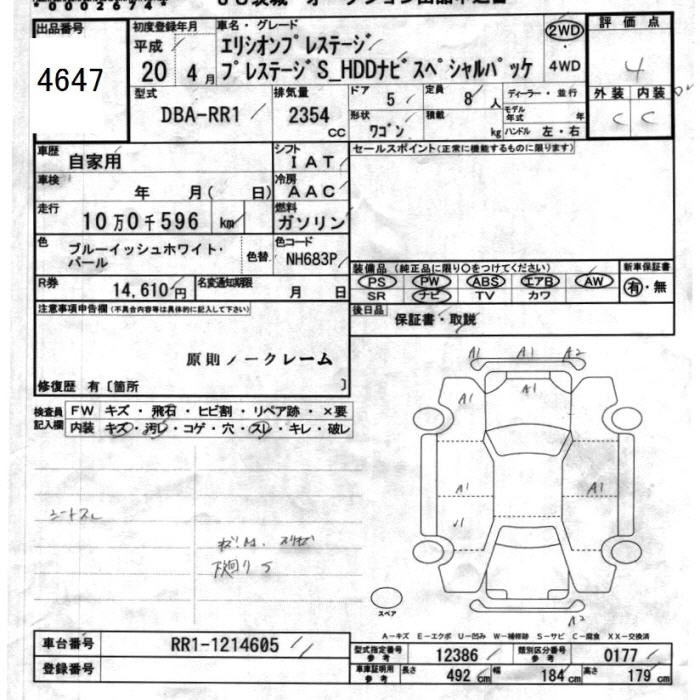 出品番号
4647
初度登録年月
平成
20 4月
車名・グレード
エリシオンプレステージ
プレステージS_HDDナビスペシャルパッケ
2WD
4WD
評価点
4
外装 内装
C C
型式
DBA-RR1
排気量
2354
CC
ドア
5
定員
8人
形状
ワゴン
積載
kg
ディーラー・並行
モデル年式 年
ハンドル 左・右
車歴
自家用
シフト
IAT
セールスポイント(正常に機能するものに限ります)
車検
年 月( 日)
冷房
AAC
走行
10万0千596km
燃料
ガソリン
色
ブルーイッシュホワイト・
パール
色替
色コード
NH683P
装備品 (純正品に限り○をつけてください)
PS PW ABS エアB AW
SR ナビ TV カワ
新車保証書
有・無
R券
14,610円
名変通知期限
月 日
後日品
保証書・取説
注意事項申告欄(不具合内容等は具体的に記入して下さい)
原則ノークレーム
修復歴 有〔箇所 〕
検査員
記入欄
FW キズ・飛石・ヒビ割・リペア跡・×要
内装 キズ・汚レ・コゲ・穴・スレ・キレ・破レ
A1 A1 A2
A1 A1
A1 A1
シートスレ
下廻りS
スペア
A2
A-キズ E-エクボ U-凹み W-補修跡 S-サビ C-腐食 XX-交換済
車台番号
RR1-1214605
登録番号
型式指定番号
参考
12386
類別区分番号
参考
0177
車庫証明用
参考
長さ
492cm
幅
184cm
高さ
179cm